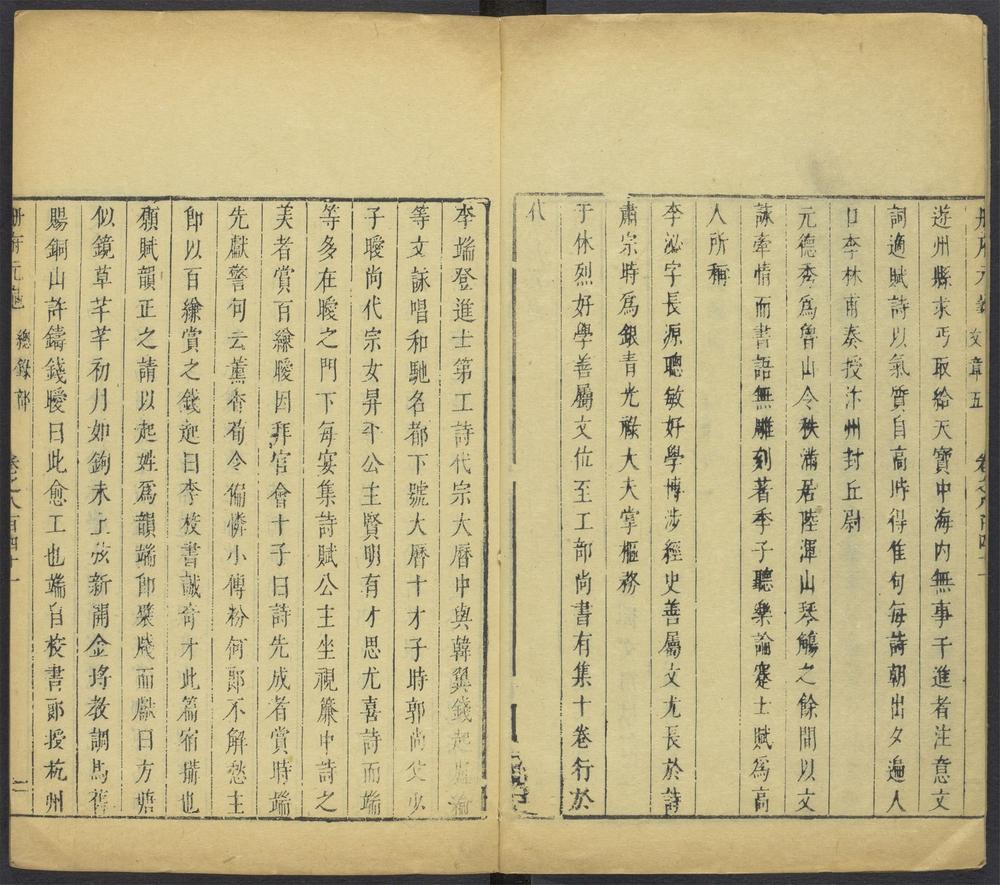 冊府元龜 文章五 卷之八百四十一
遊州縣求丐取給天寶中海內無事干進者注意文
詞適賦詩以氣質自高時得隹句每詩朝出夕遍人
口李林甫奏授汴州封丘尉
元德秀爲魯山令秩滿居陸渾山琴觴之餘間以文
詠牽情而書語無雕刻著季子聽樂論蹇士賦爲高
人所稱
李泌字長源聰敏好學博涉經史善屬文尤長於詩
肅宗時爲銀青光祿大夫掌樞務
于休烈好學善屬文位至工部尚書有集十卷行於
代
李端登進士第工詩代宗大曆中與韓翼錢起盧綸
等文詠唱和馳名都下號大曆十才子時郭尚父少
子曖尚代宗女昇平公主賢明有才思尤喜詩而端
等多在曖之門下每宴集詩賦公主坐視簾中詩之
美者賞百縑曖因拜官會十子曰詩先成者賞時端
先獻警句云薰香荀令偏憐小傅粉何郞不解愁主
卽以百縑賞之錢起曰李校書誠奇才此篇宿搆也
願賦韻正之請以起姓爲韻端卽襞牋而獻曰方塘
似鏡草芊芊初月如鉤未上弦新開金埒教調馬舊
賜銅山許鑄錢曖曰此愈工也端自校書郞授杭州
冊府元龜 總錄部 卷之八百四十一 二